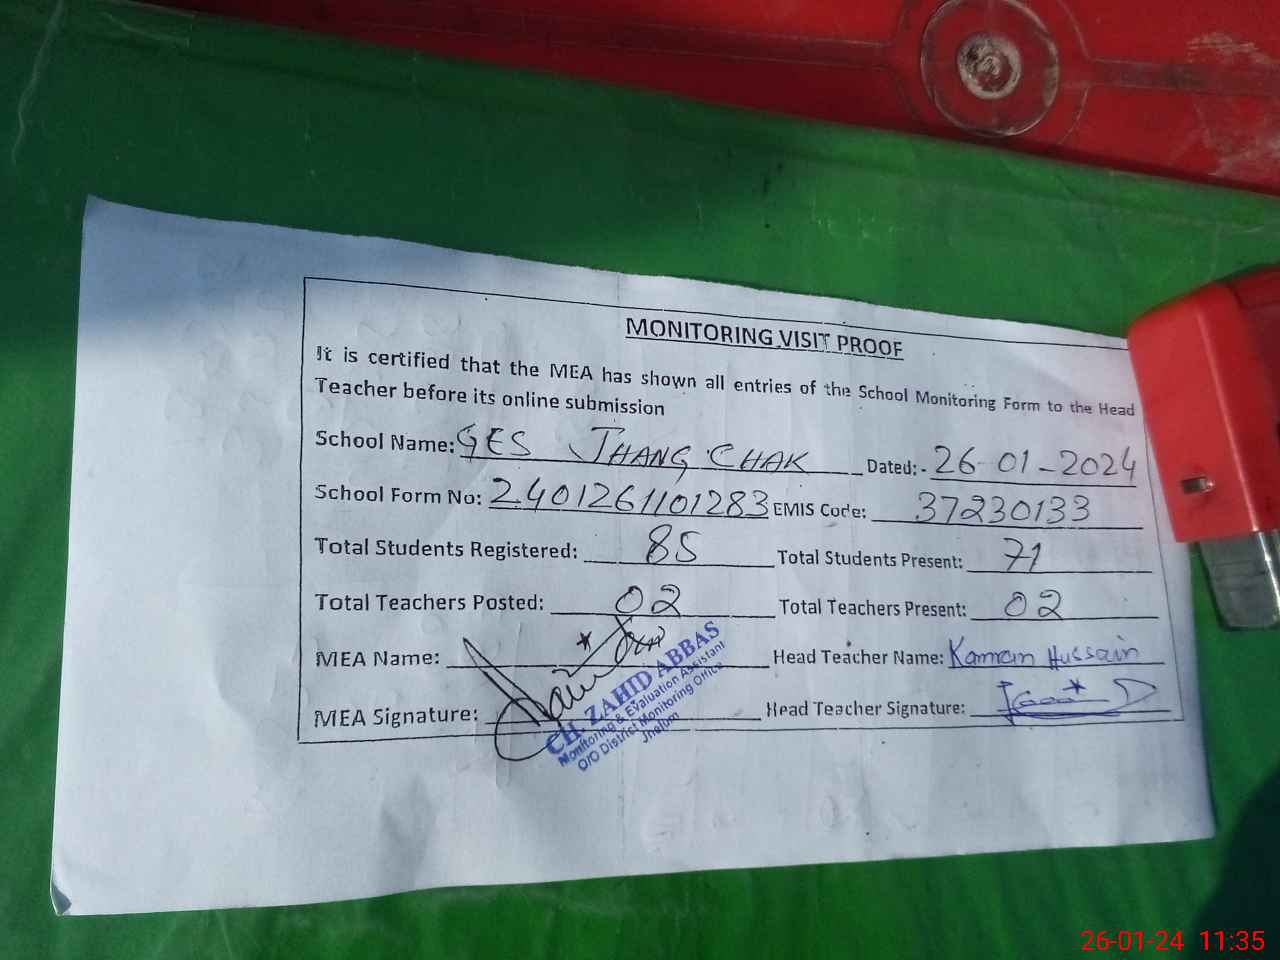 MONITORING VISIT PROOF
It is certified that the MEA has shown all entries of the School Monitoring Form to the Head
Teacher before its online submission
School Name: GES JHANG CHAK Dated:- 26-01-2024
School Form No: 2401261101283 EMIS Code: 37230133
Total Students Registered: 85 Total Students Present: 71
Total Teachers Posted: 02 Total Teachers Present: 02
MEA Name: Head Teacher Name: Kamran Hussain
MEA Signature: Head Teacher Signature:
CH. ZAHID ABBAS
Monitoring & Evaluation Assistant
O/O District Monitoring Office
Jhelum
26-01-24 11:35